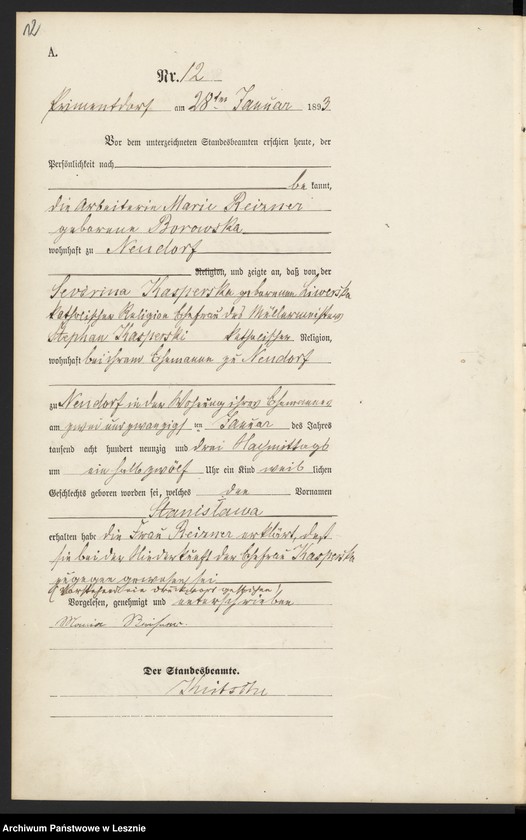 12
A.
Nr. 12
Priment dorf am 28ten Januar 1893
Vor dem unterzeichneten Standesbeamten erschien heute, der
Persönlichkeit nach
be kannt,
die Arbeiterin Marie Reizner
geborene Borowska
wohnhaft zu Neudorf
Religion, und zeigte an, daß von der
Severina Kasperska geborenen
katholischer Religion Ehefrau des Müllermeisters
Stephan Kasperski katholischer Religion,
wohnhaft bei ihrem Ehemanne zu Neudorf
zu Neudorf in der Wohnung ihres Ehemannes
am zwei und zwanzigsten Januar des Jahres
tausend acht hundert neunzig und drei Nachmittags
um ein halb zwölf Uhr ein Kind weib lichen
Geschlechts geboren worden sei, welches den Vornamen
Stanislawa
erhalten habe die Frau Reizner erklärt, daß
sie bei der Niederkunft der Ehefrau Kasperska
zugegen gewesen sei
(Vorstehend ein Druckwort gestrichen)
Vorgelesen, genehmigt und unterschrieben
Maria
Der Standesbeamte.
Archiwum Państwowe w Lesznie
szukajwarchiwach.gov.pl